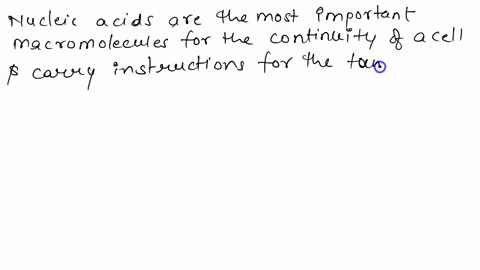 Nucleic acids are the most important
macromolecules for the continuity of a cell
& carry instructions for the